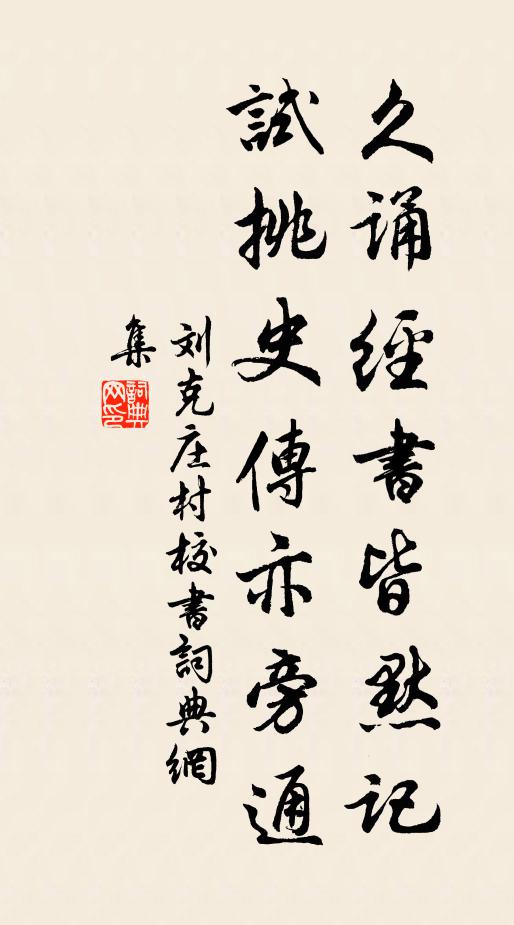 久诵經書皆默记
試挑史傳亦旁通
刘克庄村校書詞典網
集
詞典
网印